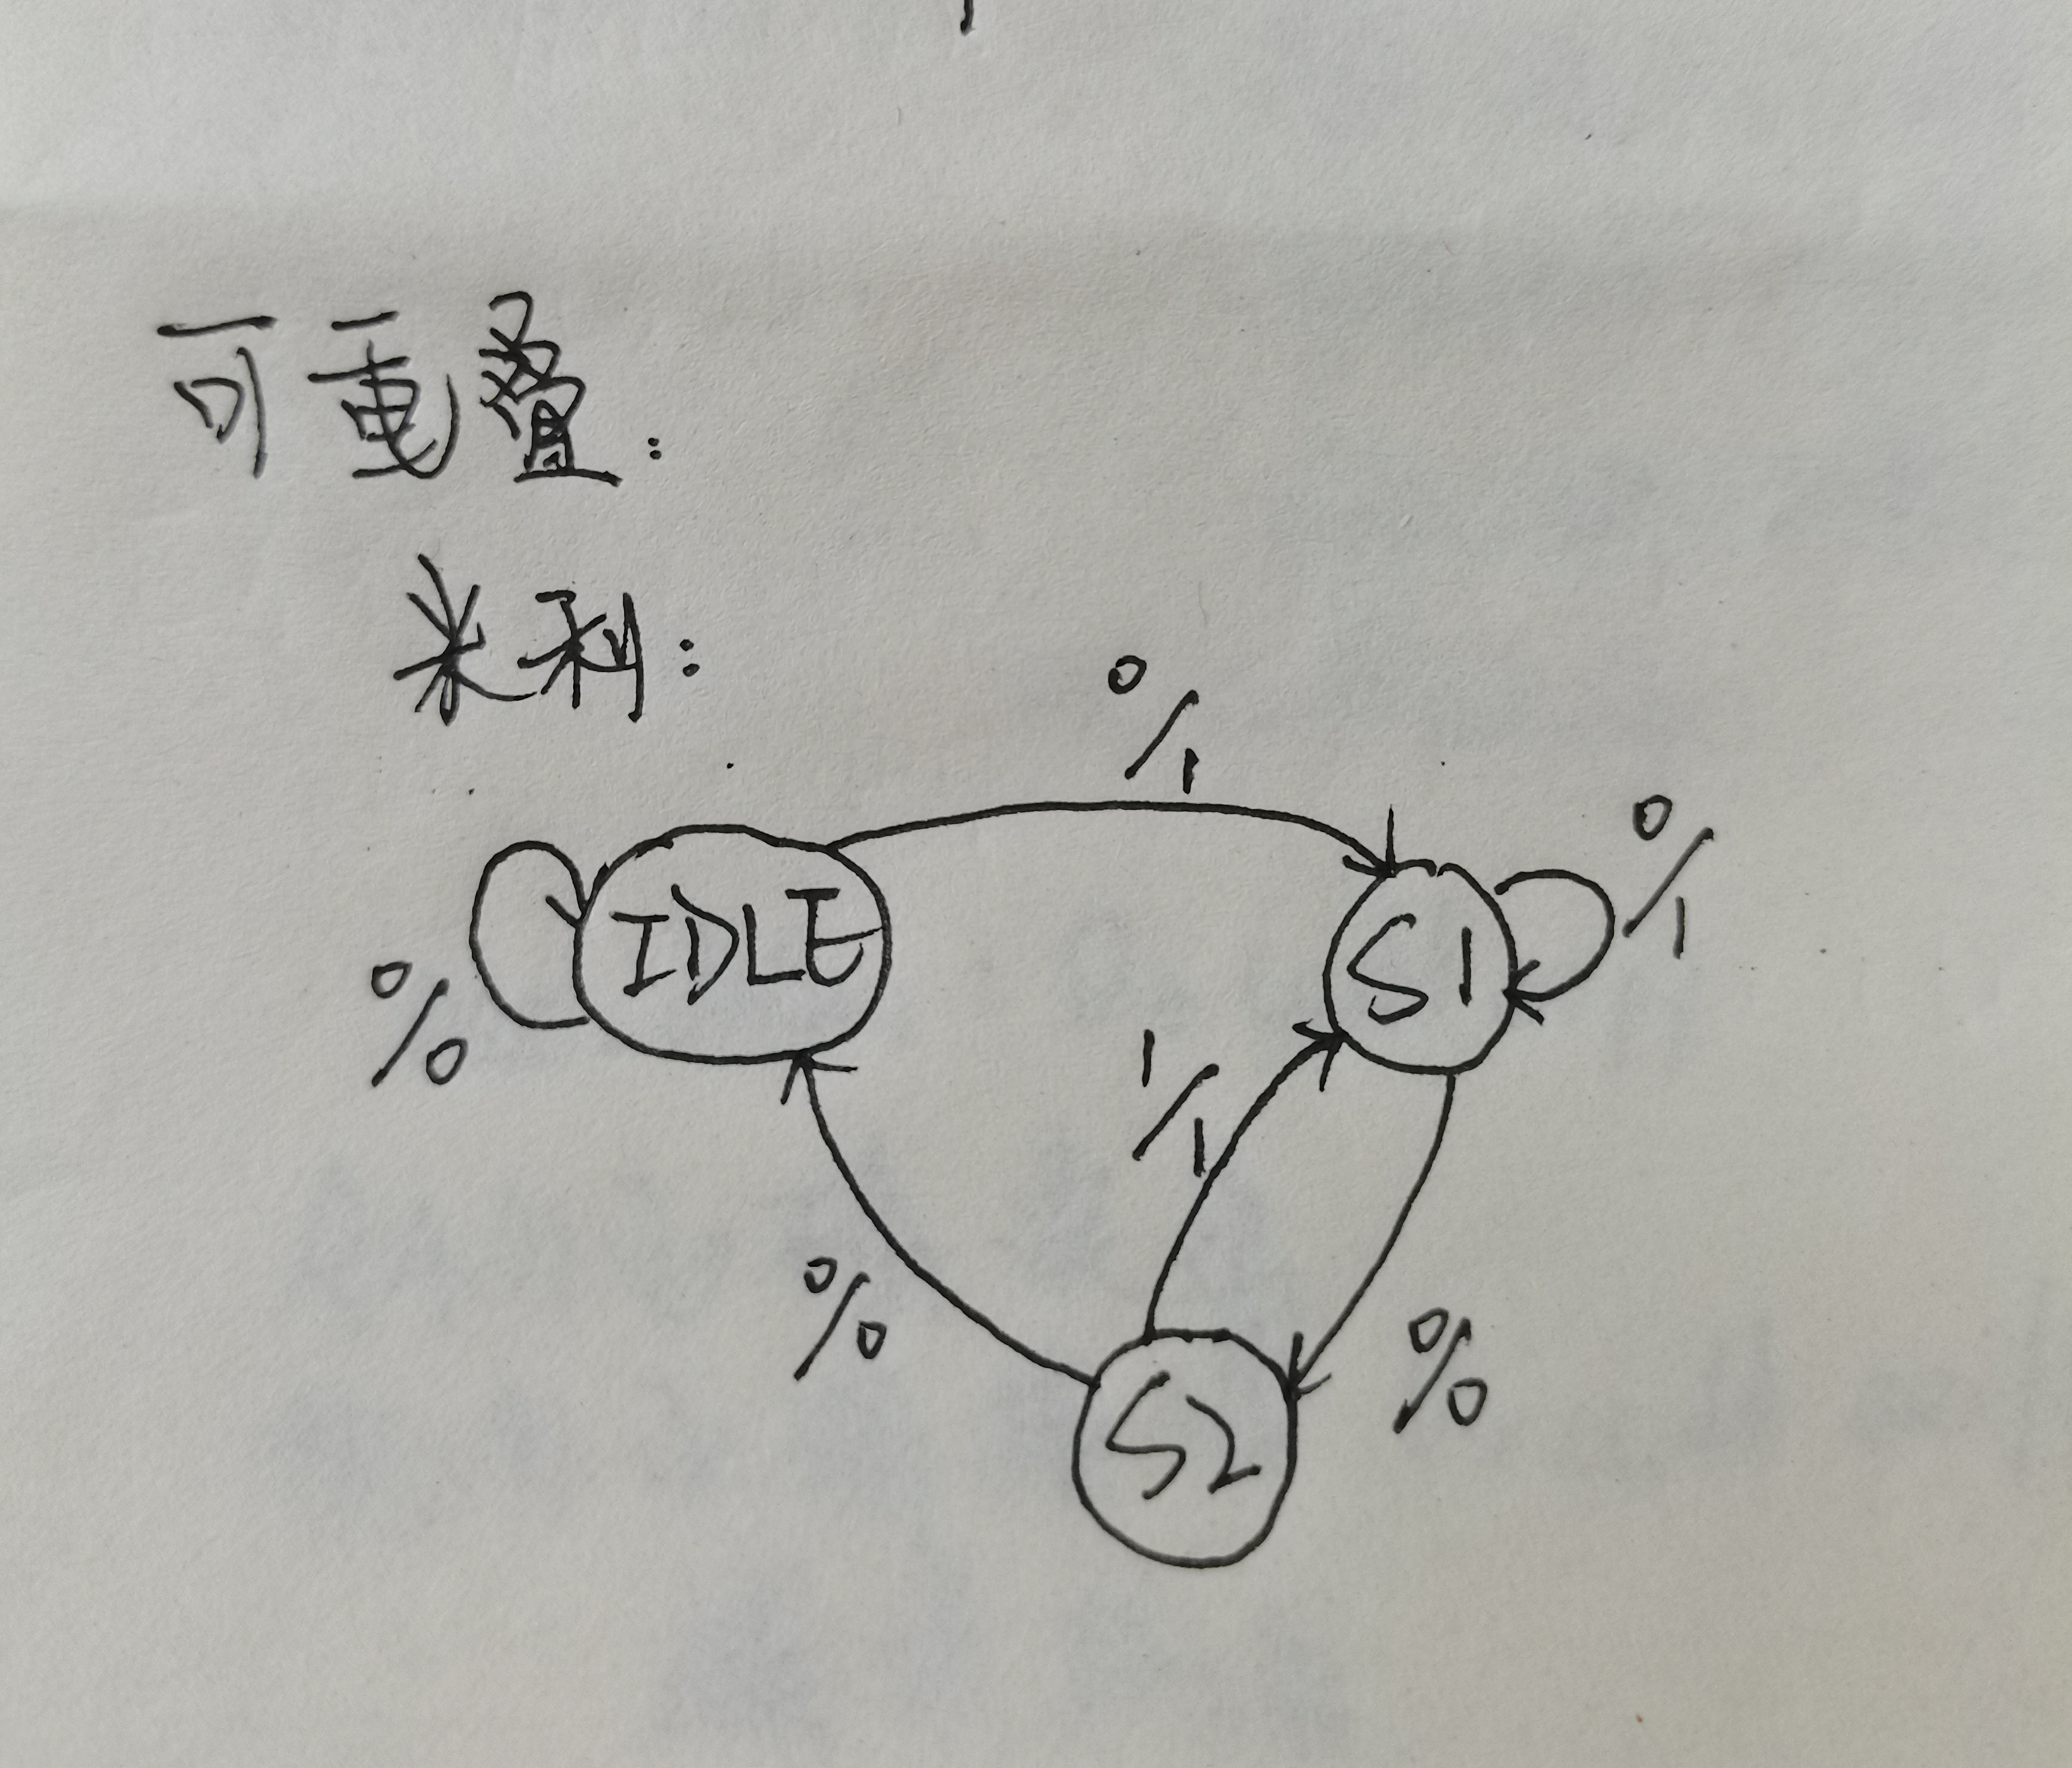 可重叠:
米利:
0/1
0/1
IDLE
S1
0/0
1/1
0/0
0/0
S2